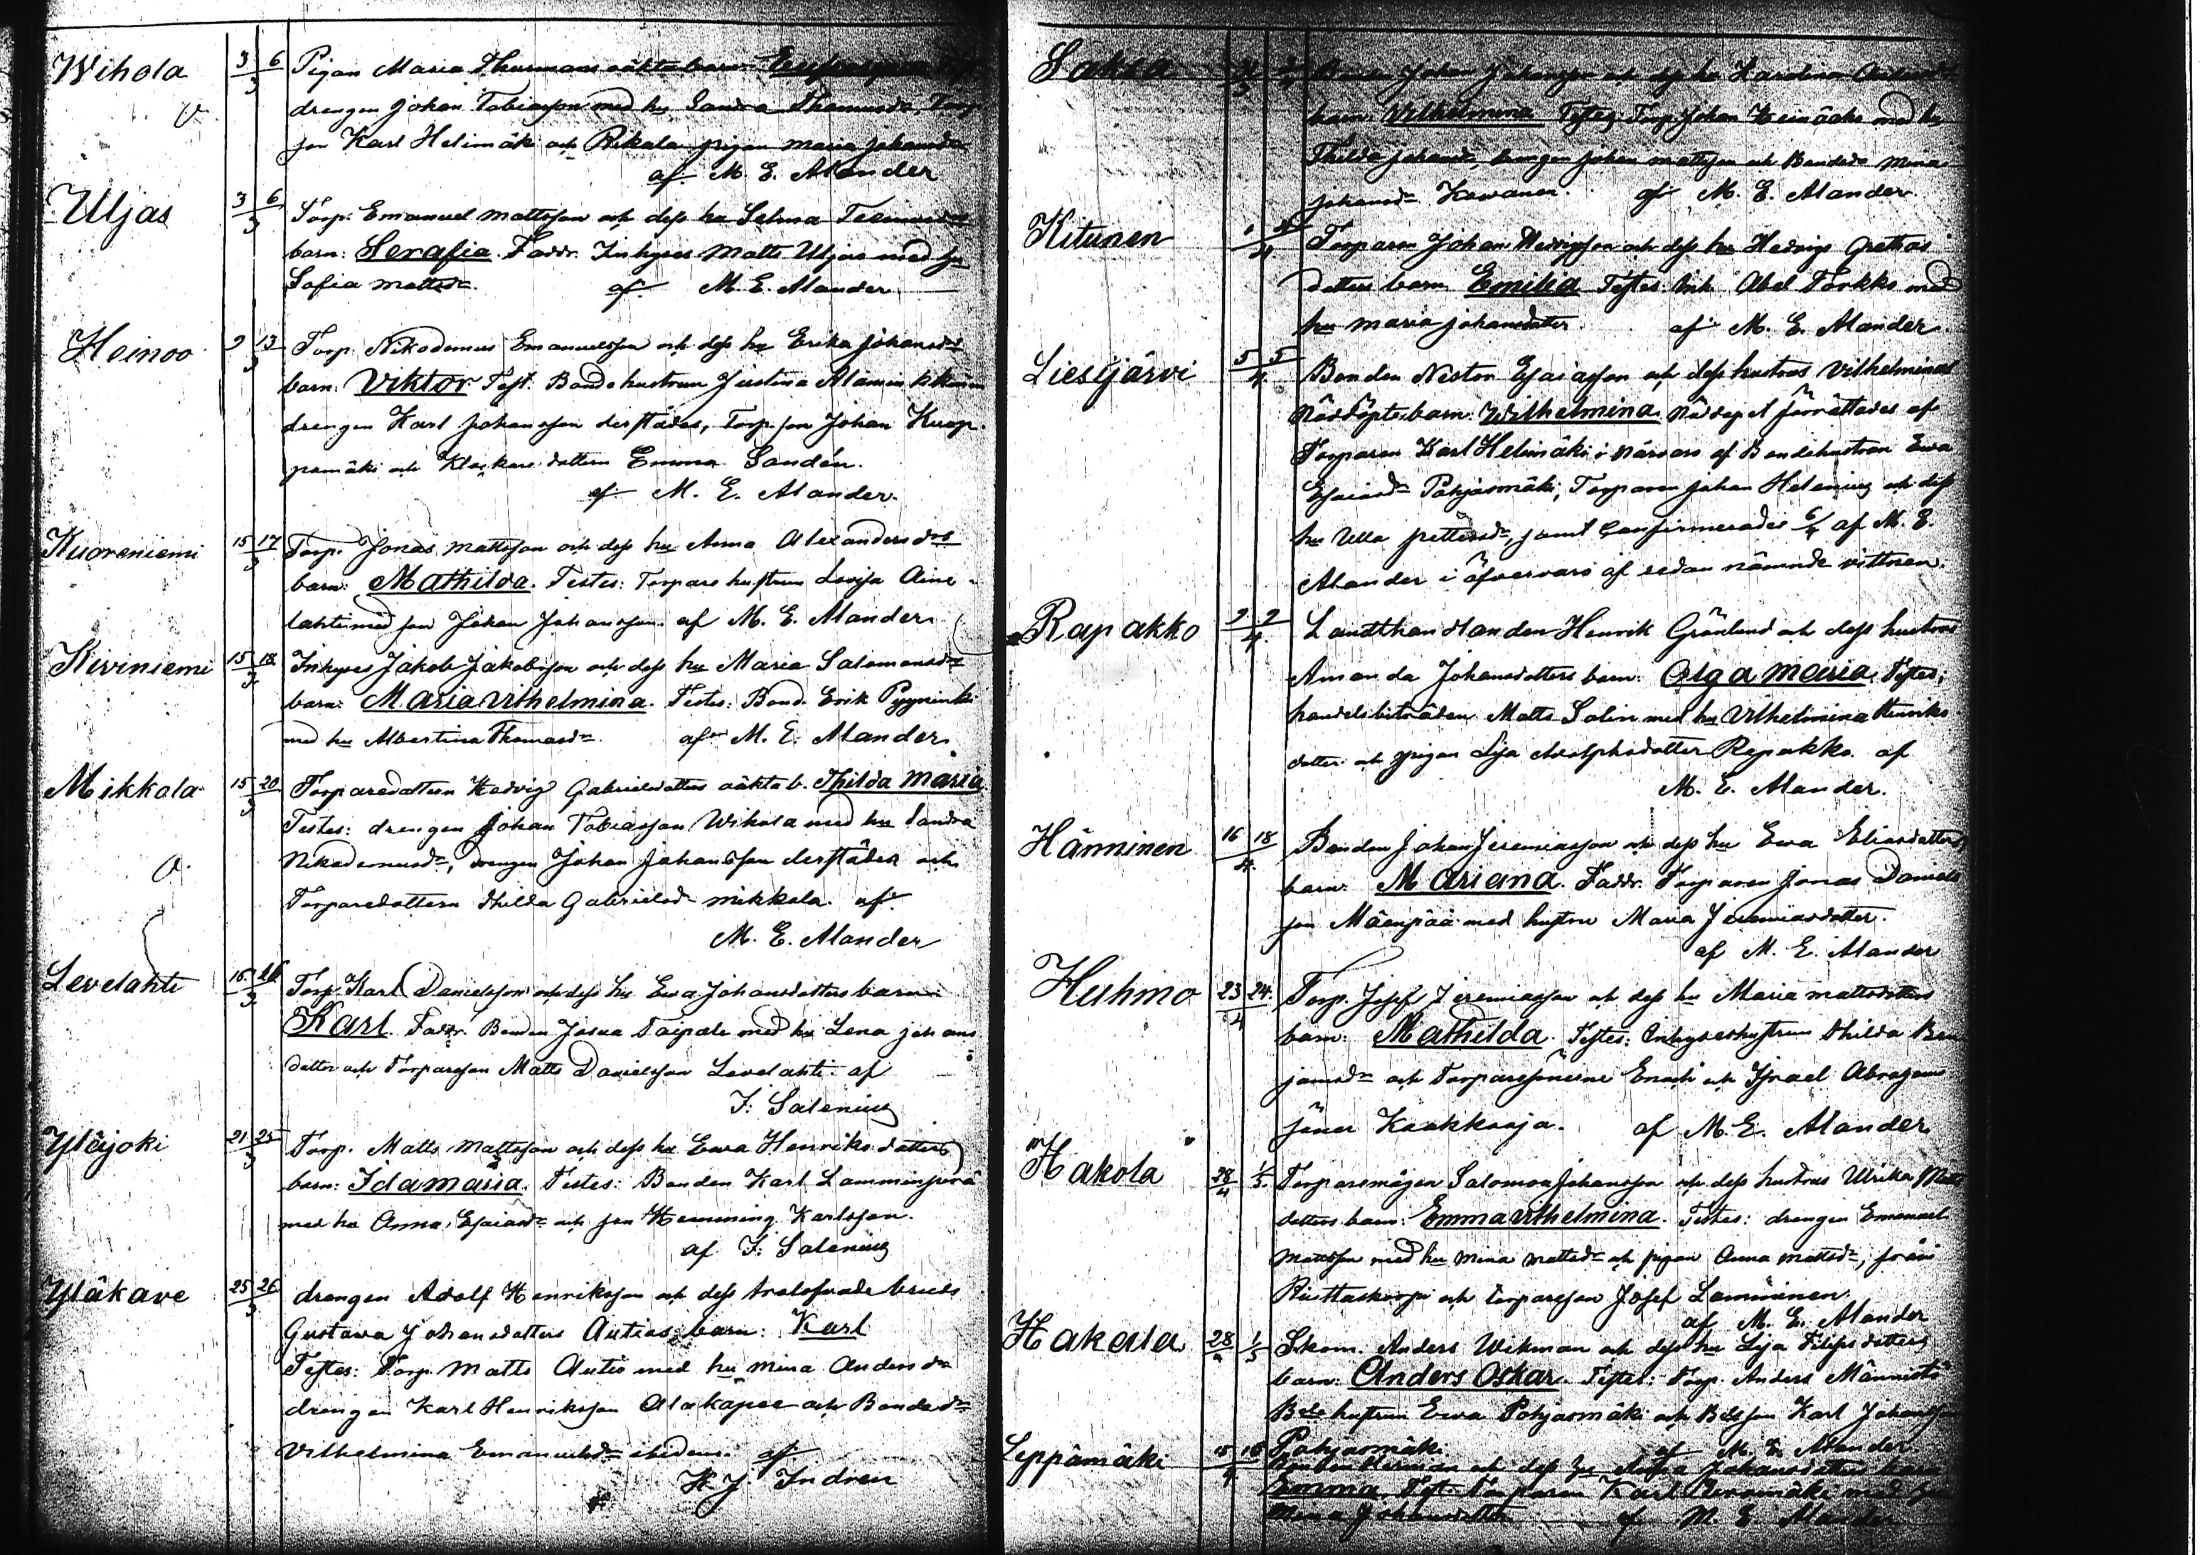 Wihola 3 6 Pigan Maria Thurmans oäkta barn
3
drengen Johan Tobiasson med hu Sandra Thomasdr, Torp
son Karl Helinmäki och Rikala pigan Maria Johansdr
af M. E. Alander
Uljas 3 6 Torp. Emanuel Mattsson och dess hu Selma
3
barn: Serafia. Faddr. Inhyses Matts Uljas med hu
Sofia Mattsdr. af M. E. Alander
Heinoo 9 13 Torp. Nikodemus Emanuelsson och dess hu Erika Johansdrs
3
barn: Viktor Test: Bondehustrun Justina
drengen Karl Johansson derstädes, Torp. son Johan Kuop-
pamäki och Klockare dottern Emma Sandén.
af M. E. Alander.
Kuoreniemi 15 17 Torp. Jonas Mattsson och dess hu Anna Alexandersdrs
3
barn: Mathilda. Testes: Torpare hustrun Lovisa Aine-
lahti med son Johan Johansson. af M. E. Alander
Kiviniemi 15 18 Inhyses Jakob Jakobsson och dess hu Maria Salomonsdrs
3
barn: Maria Vilhelmina. Testes: Bond. Erik
med hu Albertina Thomasdr. af M. E. Alander.
Mikkola 15 20 Torparedottern Hedvig Gabrielsdotters oäkta b. Thilda Maria
3
Testes: drengen Johan Tobiasson Wihola med hu Sandra
Nikodemusdr, drengen Johan Johansson derstädes och
Torparedottern Thilda Gabrielsdr Mikkola. af
M. E. Alander
Levelahti 16 26 Torp. Karl Danielsson och dess hu Ewa Johansdotters barn
3
Karl. Faddr. Bonden Josua Taipale med hu Lena Johans
dotter och Torparesson Matts Danielsson Levelahti. af
F: Salenius
Yläjoki 21 25 Torp. Matts Mattsson och dess hu Ewa Henriksdotters
3
barn: Ida Maria. Testes: Bonden Karl Lamminperä
med hu Anna Esaiasdr och son Hemming Karlsson.
af F: Salenius
Yläkave 25 26 drengen Adolf Henriksson och dess trolofvade bruds
3
Gustava Johansdotters Autios barn: Karl
Testes: Torp. Matts Autio med hu Mina Andersdr
drengen Karl Henriksson och Bondedr
Vilhelmina Emanuelsdr ibidem. af
K. J. Indren
Saksa Bonden Johan Johansson och dess hu Karolina
barn: Vilhelmina Testes: Torp. Johan med hu
Thilda Johansdr, drengen Johan Mattsson och Bondedr Mina
Johansdr Kowanen. af M. E. Alander
Kitunen 1 4 Torparen Johan och dess hu Hedvigs
4
dotters barn Emilia Testes: Inh. Abel Torkko med
hu Maria Johansdotter. af M. E. Alander.
Liesijärvi 5 5 Bonden Nestor Esaiasson och dess hustrus Vilhelminas
4
Nöddöpte barn: Wilhelmina. Nöddopet förrättades af
Torparen Karl Helinmäki i närvaro af Bondehustrun Ewa
Esaiasdr Pohjasmäki, Torparen Johan Helenius och dess
hu Ulla Pettersdr, samt confirmerades 6/4 af M. E.
Alander i öfvervaro af sedan nämnde vittnen.
Rapakko 9 9 Landthandlanden Henrik Grönlund och dess hustrus
4
Amanda Johansdotters barn: Olga Maria, Testes:
handelsbiträden Matts Salin med hu Vilhelmina Henriks
dotter och pigan Lisa Adolphsdotter Rapakko. af
M. E. Alander.
Hänninen 16 18 Bonden Johan Jeremiasson och dess hu Ewa Eliasdotters
4
barn: Mariana. Faddr. Torparen Jonas Daniels
son Mäenpää med hustru Maria Jeremiasdotter.
af M. E. Alander
Huhmo 23 24 Torp. Josef Jeremiasson och dess hu Maria Mattsdotters
4
barn: Mathilda. Testes: Inhyseshustrun Thilda Ben
jamsdr och Torparesönerne Enok och Israel Abrahams
söner af M. E. Alander
Hakola 28 1 Torparemågen Salomon Johansson och dess hustrus Ulrika Matts
4 5
dotters barn: Emma Vilhelmina. Testes: drengen Emanuel
Mattsson med hu Mina Mattsdr och pigan Anna Mattsdr, från
och torparesson Josef Lamminen.
af M. E. Alander
Hakala 28 1 Skom. Anders Wikman och dess hu Lisa Filipsdotters
4 5
barn: Anders Oskar. Testes: Torp. Anders Männistö
Bde hustrun Ewa Pohjasmäki och Bdesson Karl Johansson
Pohjasmäki. af M. E. Alander
Leppämäki 15 16 och dess hu Johansdotters barn
4
Emma. Test: Torparen Karl med hu
Mina Johansdotter af M. E. Alander